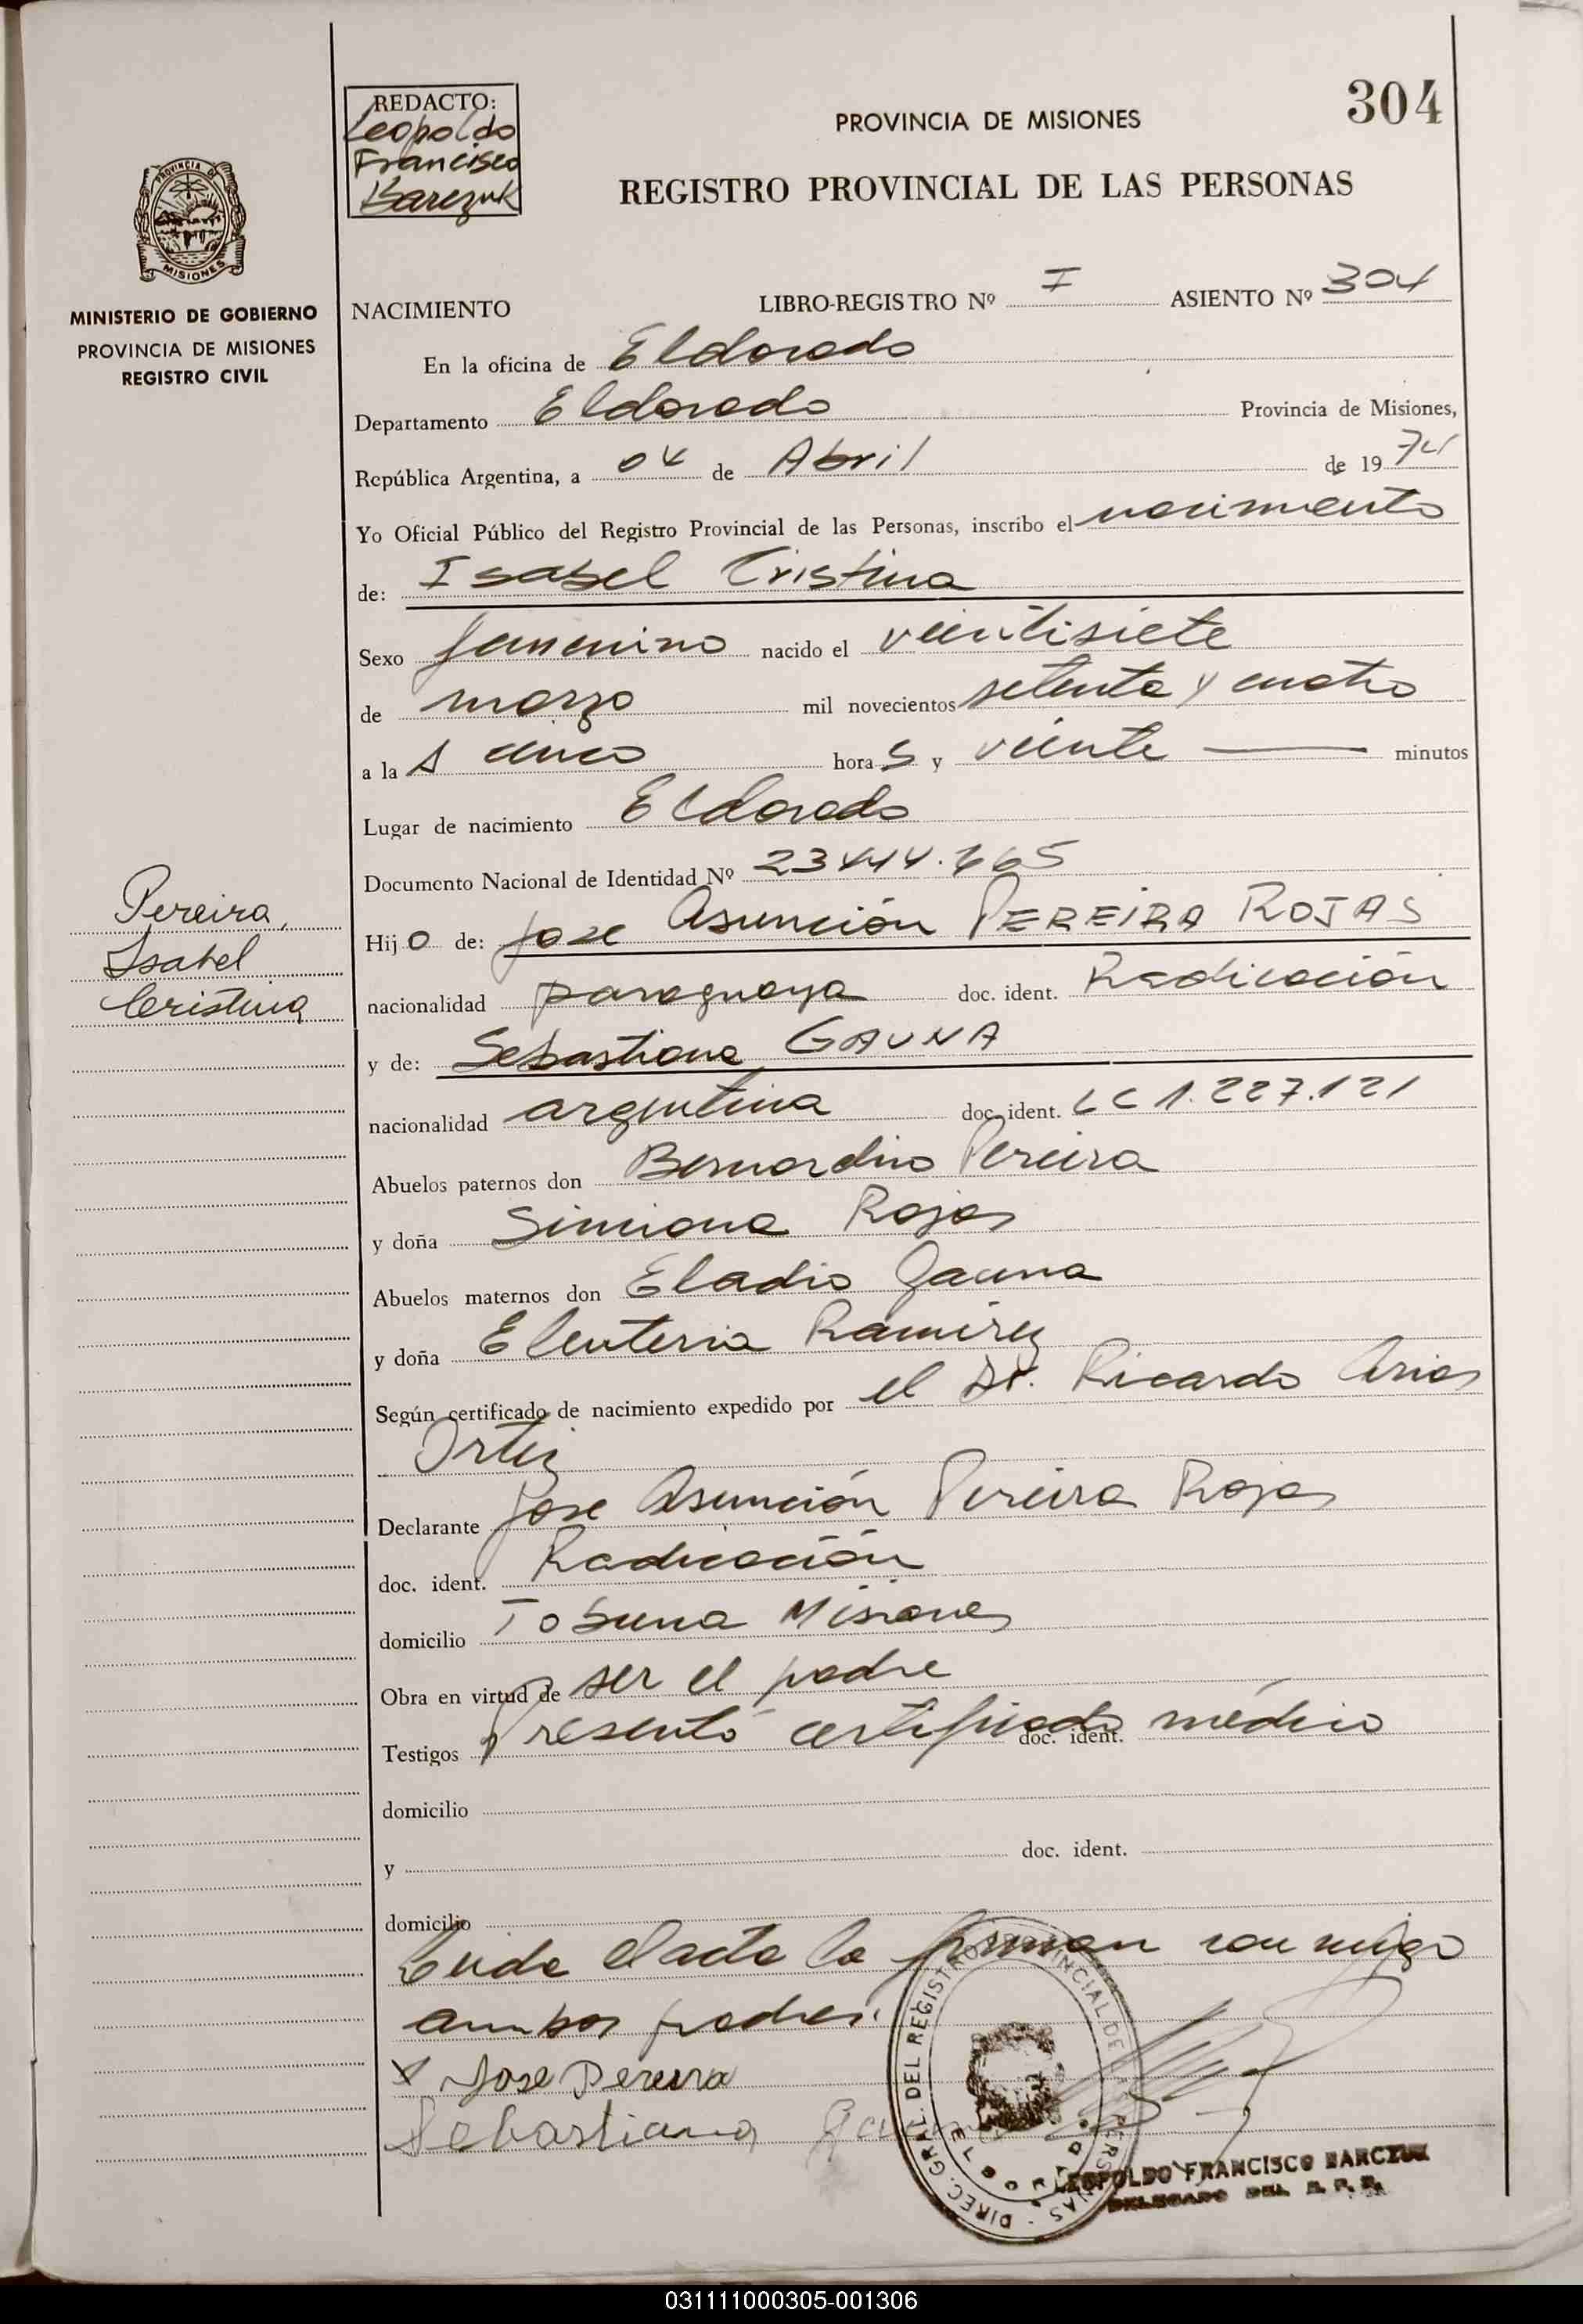 304
REDACTO:
Leopoldo
Francisco
Barczuk
PROVINCIA DE MISIONES
REGISTRO PROVINCIAL DE LAS PERSONAS
PROVINCIA DE
MISIONES
MINISTERIO DE GOBIERNO
PROVINCIA DE MISIONES
REGISTRO CIVIL
NACIMIENTO LIBRO-REGISTRO Nº I ASIENTO Nº 304
En la oficina de Eldorado
Departamento Eldorado Provincia de Misiones,
República Argentina, a 04 de Abril de 19 74
Yo Oficial Público del Registro Provincial de las Personas, inscribo el nacimiento
de: Isabel Cristina
Sexo femenino nacido el veintisiete
de marzo mil novecientos setenta y cuatro
a la s cinco hora s y veinte minutos
Lugar de nacimiento Eldorado
Documento Nacional de Identidad Nº
Pereira,
Isabel
Cristina
Hij o de: Jose Asunción PEREIRA ROJAS
nacionalidad paraguaya doc. ident. Radicación
y de: Sebastiana GAUNA
nacionalidad argentina doc. ident. LC 1.227.121
Abuelos paternos don Bernardino Pereira
y doña Simiona Rojas
Abuelos maternos don Eladio Gauna
y doña Eleuteria Ramirez
Según certificado de nacimiento expedido por el Dr. Ricardo Arias
Ortiz
Declarante Jose Asunción Pereira Rojas
doc. ident. Radicación
domicilio Tobuna Misiones
Obra en virtud de ser el padre
Testigos Presentó certificado médico doc. ident.
domicilio
y doc. ident.
domicilio
Leida el acta la firman conmigo
ambos padres.
x Jose Pereira
Sebastiana
DIREC. GRAL. DEL REGISTRO PROVINCIAL DE LAS PERSONAS
ELDORADO
LEOPOLDO FRANCISCO BARCZUK
DELEGADO DEL R. P. P.
031111000305-001306